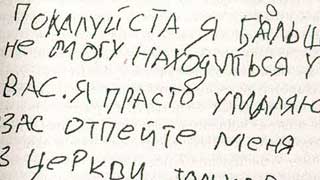 ПОЖАЛУЙСТА Я БОЛЬШ
НЕ МОГУ НАХОДИТЬСЯ У
ВАС. Я ПРАСТО УМАЛЯЮ
ЗАС ОТПЕЙТЕ МЕНЯ
З ЦЕРКВИ